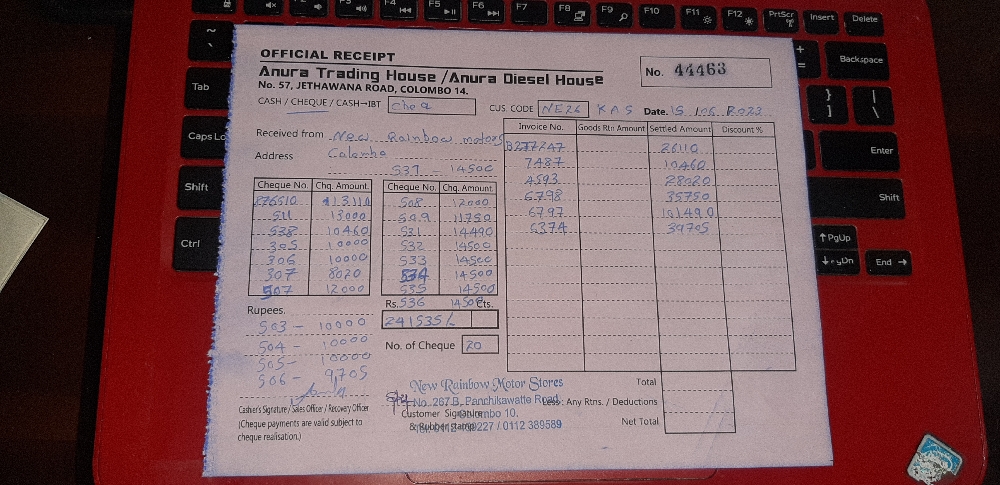 OFFICIAL RECEIPT
Anura Trading House /Anura Diesel House
No. 57, JETHAWANA ROAD, COLOMBO 14.
No. 44463
CASH / CHEQUE / CASH→IBT Cheq
CUS. CODE NE26 KAS Date. 15 /05. 2023
Received from New Rainbow motors
Address Colombo
537 14500
Cheque No. Chq. Amount. Cheque No. Chq. Amount.
276510 13110 508 12000
511 13000 509 11750
538 10460 531 14490
305 10000 532 14500
306 10000 533 14500
307 8020 534 14500
507 12000 535 14500
Rs. 536 14500 Cts.
241535/-
No. of Cheque 20
Rupees.
503 - 10000
504 - 10000
505 - 10000
506 - 9,705
Cashier's Signature / Sales Officer / Recovery Officer
(Cheque payments are valid subject to
cheque realisation.)
Invoice No. Goods Rtn Amount Settled Amount Discount %
B277247 26110
7487 10460
4593 28020
6798 35750
6797 101490
5374 39705
Total
Less: Any Rtns. / Deductions
Net Total
New Rainbow Motor Stores
No. 267 B, Panchikawatte Road,
Colombo 10.
227 / 0112 389589
Customer Signature
& Rubber stamp
F5 F6 F7 F8 F9 F10 F11 F12 PrtScr Insert Delete
Backspace
Tab
Caps Lo
Enter
Shift
Shift
Ctrl
↑PgUp
End →